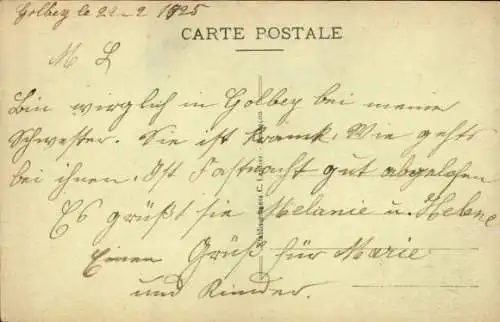 Golbey le 22-2 1925
CARTE POSTALE
M L
Bin wirglich in Golbey bei meine
Schwester. Sie ist krank. Wie gehts
bei ihnen. Ist Fastnacht gut abgelofen
Es grüßt sie Melanie u. Helene
Einen Grüß für Marie
und Kinder.